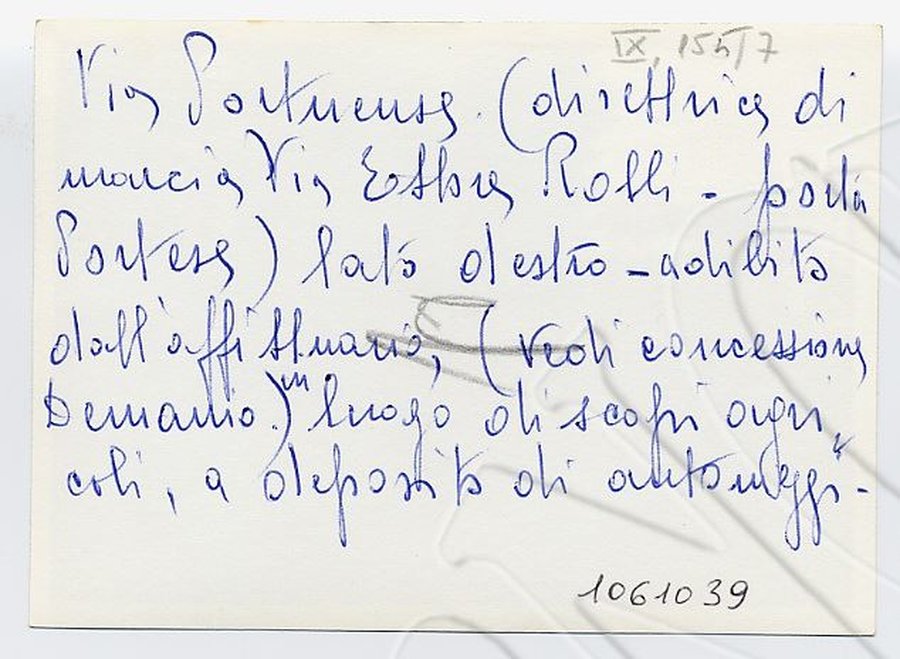 IX, 15h/7
Via Portuense. (direttrice di
marcia Via Ettore Rolli - porta
Portese) lato destro - adibito
dall'affittuario, (vedi concessione
Demanio.) in luogo di scopi agri
coli, a deposito di automezzi-
1061039